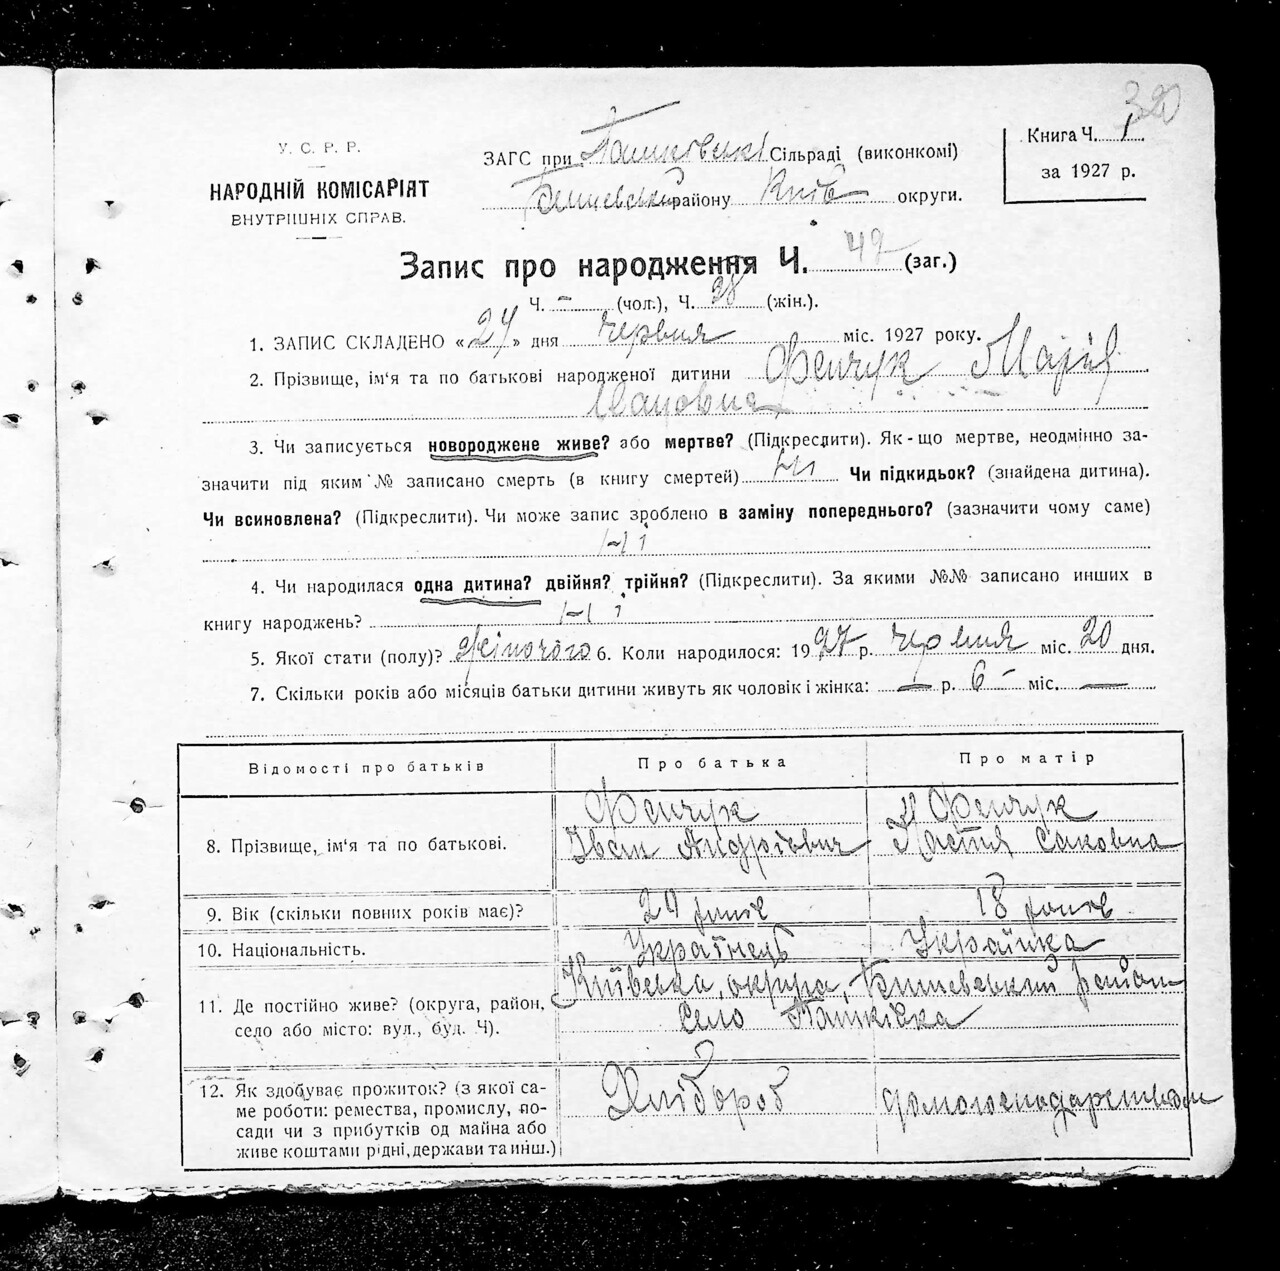 320
У. С. Р. Р.
НАРОДНІЙ КОМІСАРІЯТ
ВНУТРІШНІХ СПРАВ.
ЗАГС при Пашківські Сільраді (виконкомі)
Бишевський району Київ округи.
Книга Ч. 1
за 1927 р.
Запис про народження Ч. 42 (заг.)
Ч. – (чол.), Ч. 28 (жін.).
1. ЗАПИС СКЛАДЕНО «24» дня червня міс. 1927 року.
2. Прізвище, ім'я та по батькові народженої дитини Фенчук Марія
Івановна
3. Чи записується новороджене живе? або мертве? (Підкреслити). Як-що мертве, неодмінно за-
значити під яким № записано смерть (в книгу смертей) Ні Чи підкидьок? (знайдена дитина).
Чи всиновлена? (Підкреслити). Чи може запис зроблено в заміну попереднього? (зазначити чому саме)
Ні
4. Чи народилася одна дитина? двійня? трійня? (Підкреслити). За якими №№ записано инших в
книгу народжень? Ні
5. Якої стати (полу)? Жіночого 6. Коли народилося: 1927 р. червня міс. 20 дня.
7. Скільки років або місяців батьки дитини живуть як чоловік і жінка: — р. 6 – міс. —
Відомості про батьків Про батька Про матір
8. Прізвище, ім'я та по батькові. Фенчук Іван Андрієвич Фенчук Настя Саковна
9. Вік (скільки повних років має)? років 18 років
10. Національність. Українець Українка
11. Де постійно живе? (округа, район, село або місто: вул., буд. Ч). Київська округа, Бишевський район
село Пашківка
12. Як здобуває прожиток? (з якої са-
ме роботи: ремества, промислу, по-
сади чи з прибутків од майна або
живе коштами рідні, держави та инш.) Хлібороб домогосподарством